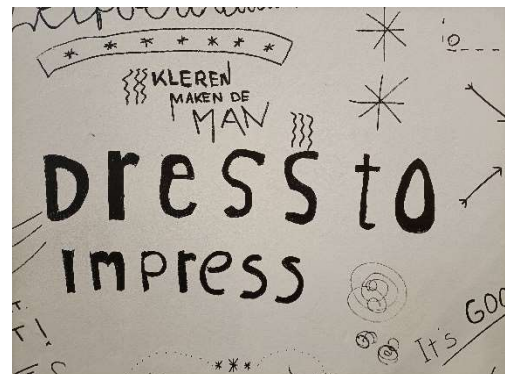 KLEREN
MAKEN DE
MAN
Dress to
Impress
It's GOO